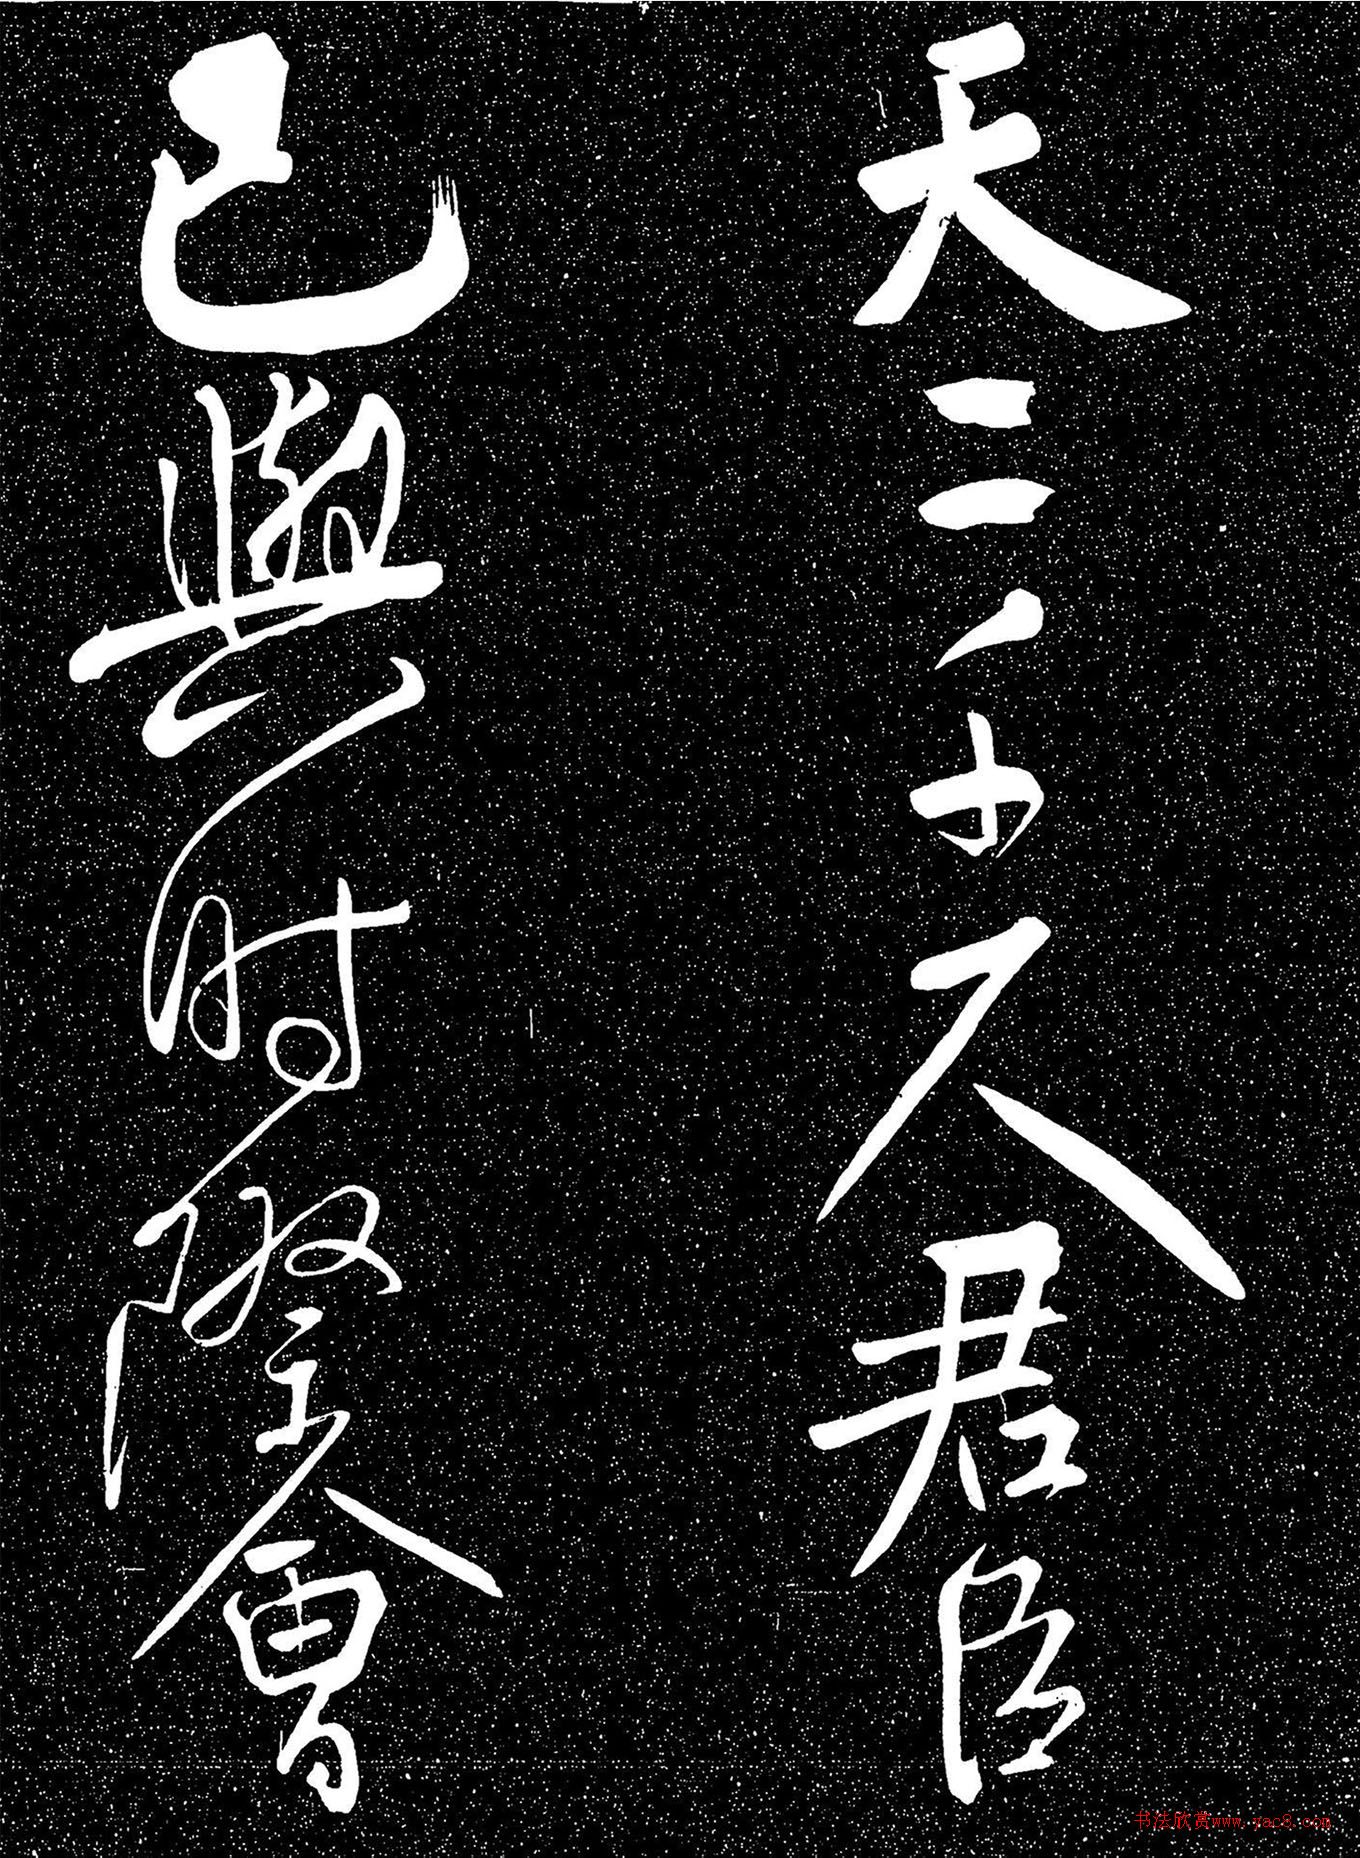 天二千尺君臣
已與時際會
书法欣赏www.yac8.com